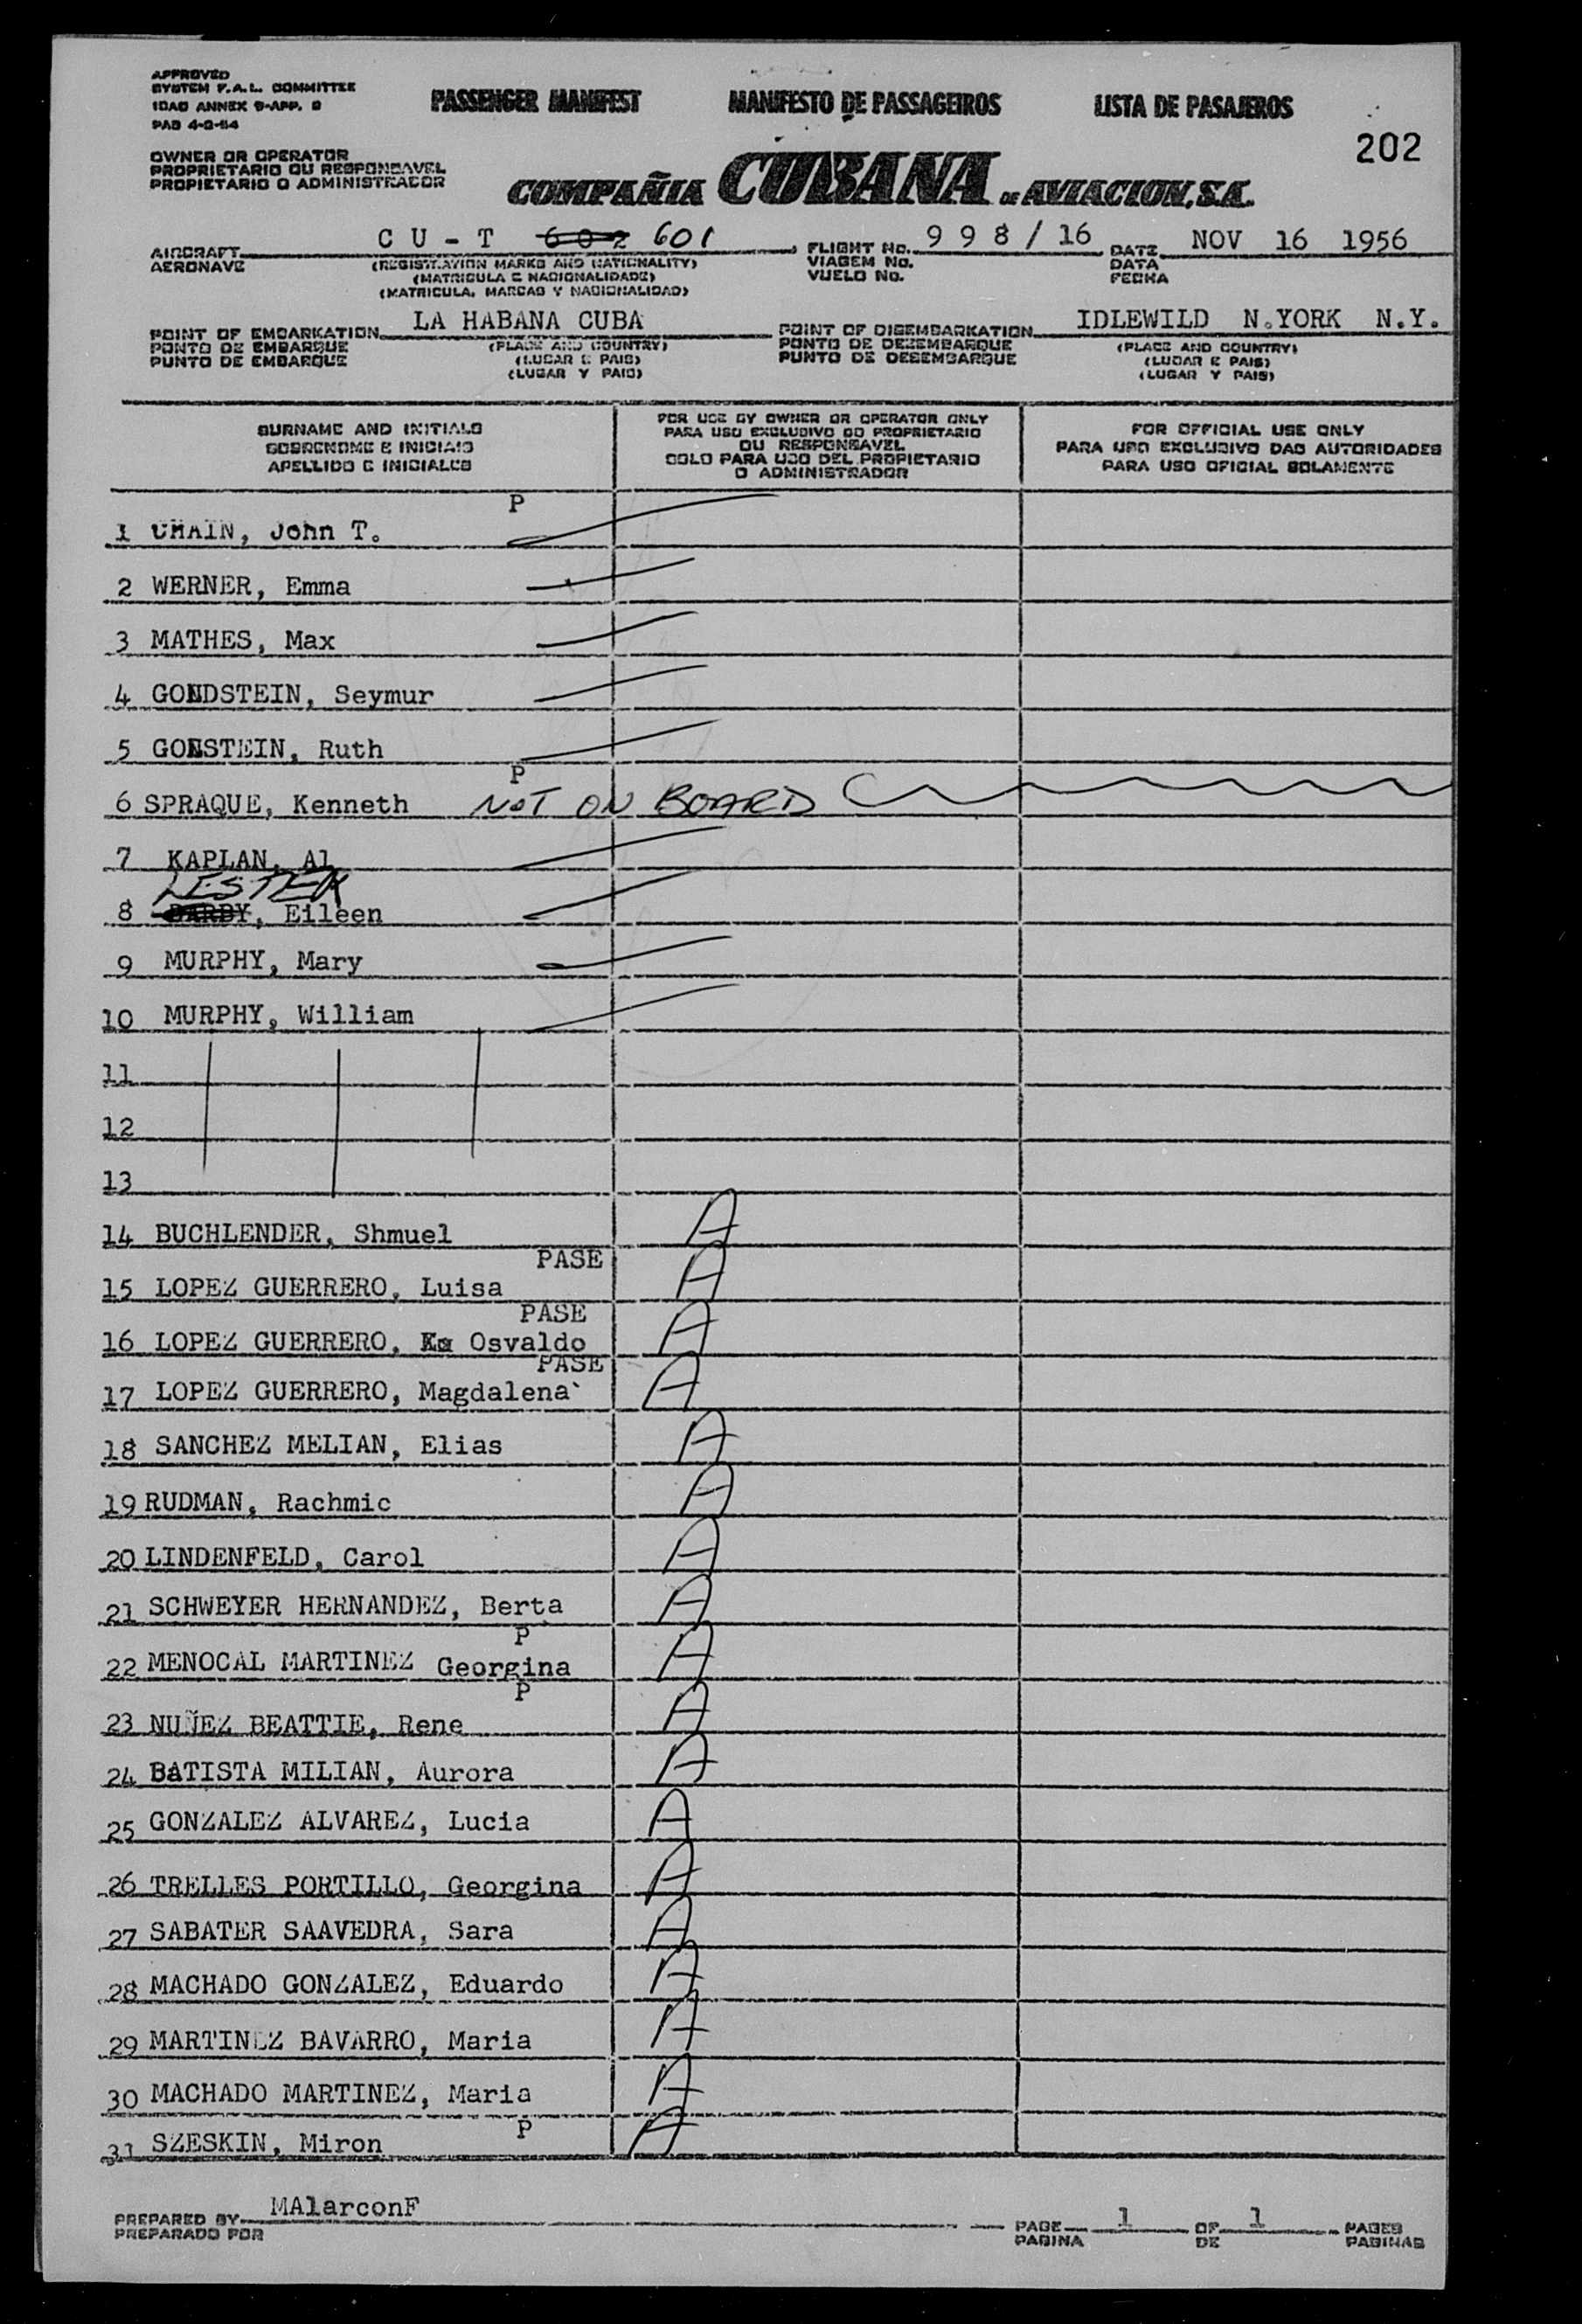 APPROVED
SYSTEM F.A.L. COMMITTEE
ICAO ANNEX 9-APP. 2
PAB 4-2-54
PASSENGER MANIFEST MANIFESTO DE PASSAGEIROS LISTA DE PASAJEROS
202
OWNER OR OPERATOR
PROPRIETARIO OU RESPONSAVEL
PROPIETARIO O ADMINISTRADOR
COMPAÑIA CUBANA DE AVIACION, S.A.
AIRCRAFT CU-T 602 601, FLIGHT No. 998/16 DATE NOV 16 1956
AERONAVE (REGISTRATION MARKS AND NATIONALITY) VIAGEM No. DATA
(MATRICULA E NACIONALIDADE) VUELO No. FECHA
(MATRICULA, MARCAS Y NACIONALIDAD)
POINT OF EMBARKATION LA HABANA CUBA POINT OF DISEMBARKATION IDLEWILD N.YORK N.Y.
PONTO DE EMBARQUE (PLACE AND COUNTRY) PONTO DE DEZEMBARQUE (PLACE AND COUNTRY)
PUNTO DE EMBARQUE (LUGAR E PAIS) PUNTO DE DESEMBARQUE (LUGAR E PAIS)
(LUGAR Y PAIS) (LUGAR Y PAIS)
SURNAME AND INITIALS
SOBRENOME E INICIAIS
APELLIDO E INICIALES
FOR USE BY OWNER OR OPERATOR ONLY
PARA USO EXCLUSIVO DO PROPRIETARIO
OU RESPONSAVEL
SOLO PARA USO DEL PROPIETARIO
O ADMINISTRADOR
FOR OFFICIAL USE ONLY
PARA USO EXCLUSIVO DAS AUTORIDADES
PARA USO OFICIAL SOLAMENTE
P
1 CHAIN, John T.
2 WERNER, Emma
3 MATHES, Max
4 GOLDSTEIN, Seymur
5 GOLSTEIN, Ruth
P
6 SPRAQUE, Kenneth NOT ON BOARD
7 KAPLAN, Al
LESTER
8 DARBY, Eileen
9 MURPHY, Mary
10 MURPHY, William
11
12
13
14 BUCHLENDER, Shmuel A
PASE
15 LOPEZ GUERRERO, Luisa A
PASE
16 LOPEZ GUERRERO, Osvaldo A
PASE
17 LOPEZ GUERRERO, Magdalena A
18 SANCHEZ MELIAN, Elias A
19 RUDMAN, Rachmic A
20 LINDENFELD, Carol A
21 SCHWEYER HERNANDEZ, Berta A
P
22 MENOCAL MARTINEZ Georgina A
P
23 NUÑEZ BEATTIE, Rene A
24 BATISTA MILIAN, Aurora A
25 GONZALEZ ALVAREZ, Lucia A
26 TRELLES PORTILLO, Georgina A
27 SABATER SAAVEDRA, Sara A
28 MACHADO GONZALEZ, Eduardo A
29 MARTINEZ BAVARRO, Maria A
30 MACHADO MARTINEZ, Maria A
P
31 SZESKIN, Miron A
PREPARED BY MAlarconF PAGE 1 OF 1 PAGES
PREPARADO POR PAGINA DE PAGINAS